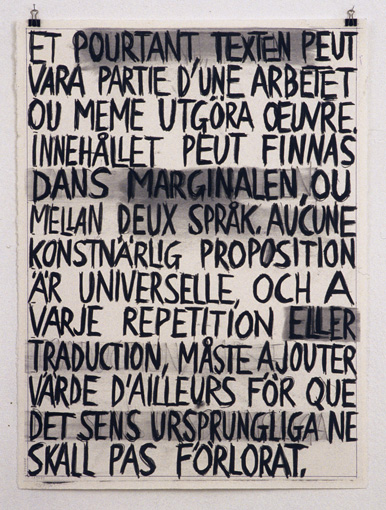 ET POURTANT, TEXTEN PEUT
VARA PARTIE D'UNE ARBETET
OU MEME UTGÖRA ŒUVRE.
INNEHÅLLET PEUT FINNAS
DANS MARGINALEN, OU
MELLAN DEUX SPRÅK. AUCUNE
KONSTNÄRLIG PROPOSITION
ÄR UNIVERSELLE, OCH A
VARJE REPETITION ELLER
TRADUCTION, MÅSTE AJOUTER
VÄRDE D'AILLEURS FÖR QUE
DET SENS URSPRUNGLIGA NE
SKALL PAS FÖRLORAT.